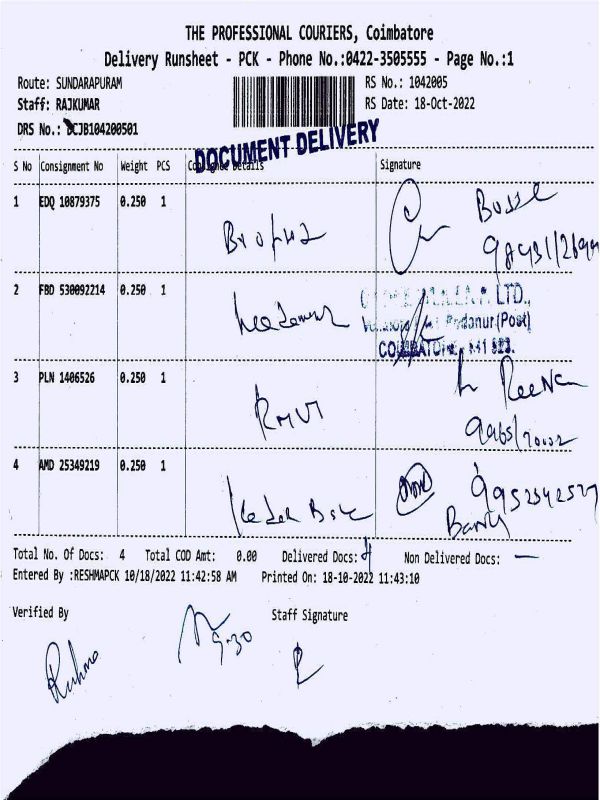 THE PROFESSIONAL COURIERS, Coimbatore
Delivery Runsheet - PCK - Phone No.:0422-3505555 - Page No.:1
Route: SUNDARAPURAM
RS No.: 1042005
Staff: RAJKUMAR
RS Date: 18-Oct-2022
DRS No.: DCJB104200501
DOCUMENT DELIVERY
S No Consignment No Weight PCS Consignee Details Signature
1 EDQ 10879375 0.250 1
2 FBD 530092214 0.250 1
LTD.,
Podanur(Post)
3 PLN 1406526 0.250 1
ReeNa
4 AMD 25349219 0.250 1
9952542527
Total No. Of Docs: 4 Total COD Amt: 0.00 Delivered Docs: 4 Non Delivered Docs: —
Entered By :RESHMAPCK 10/18/2022 11:42:58 AM Printed On: 18-10-2022 11:43:10
Verified By Staff Signature
9-30